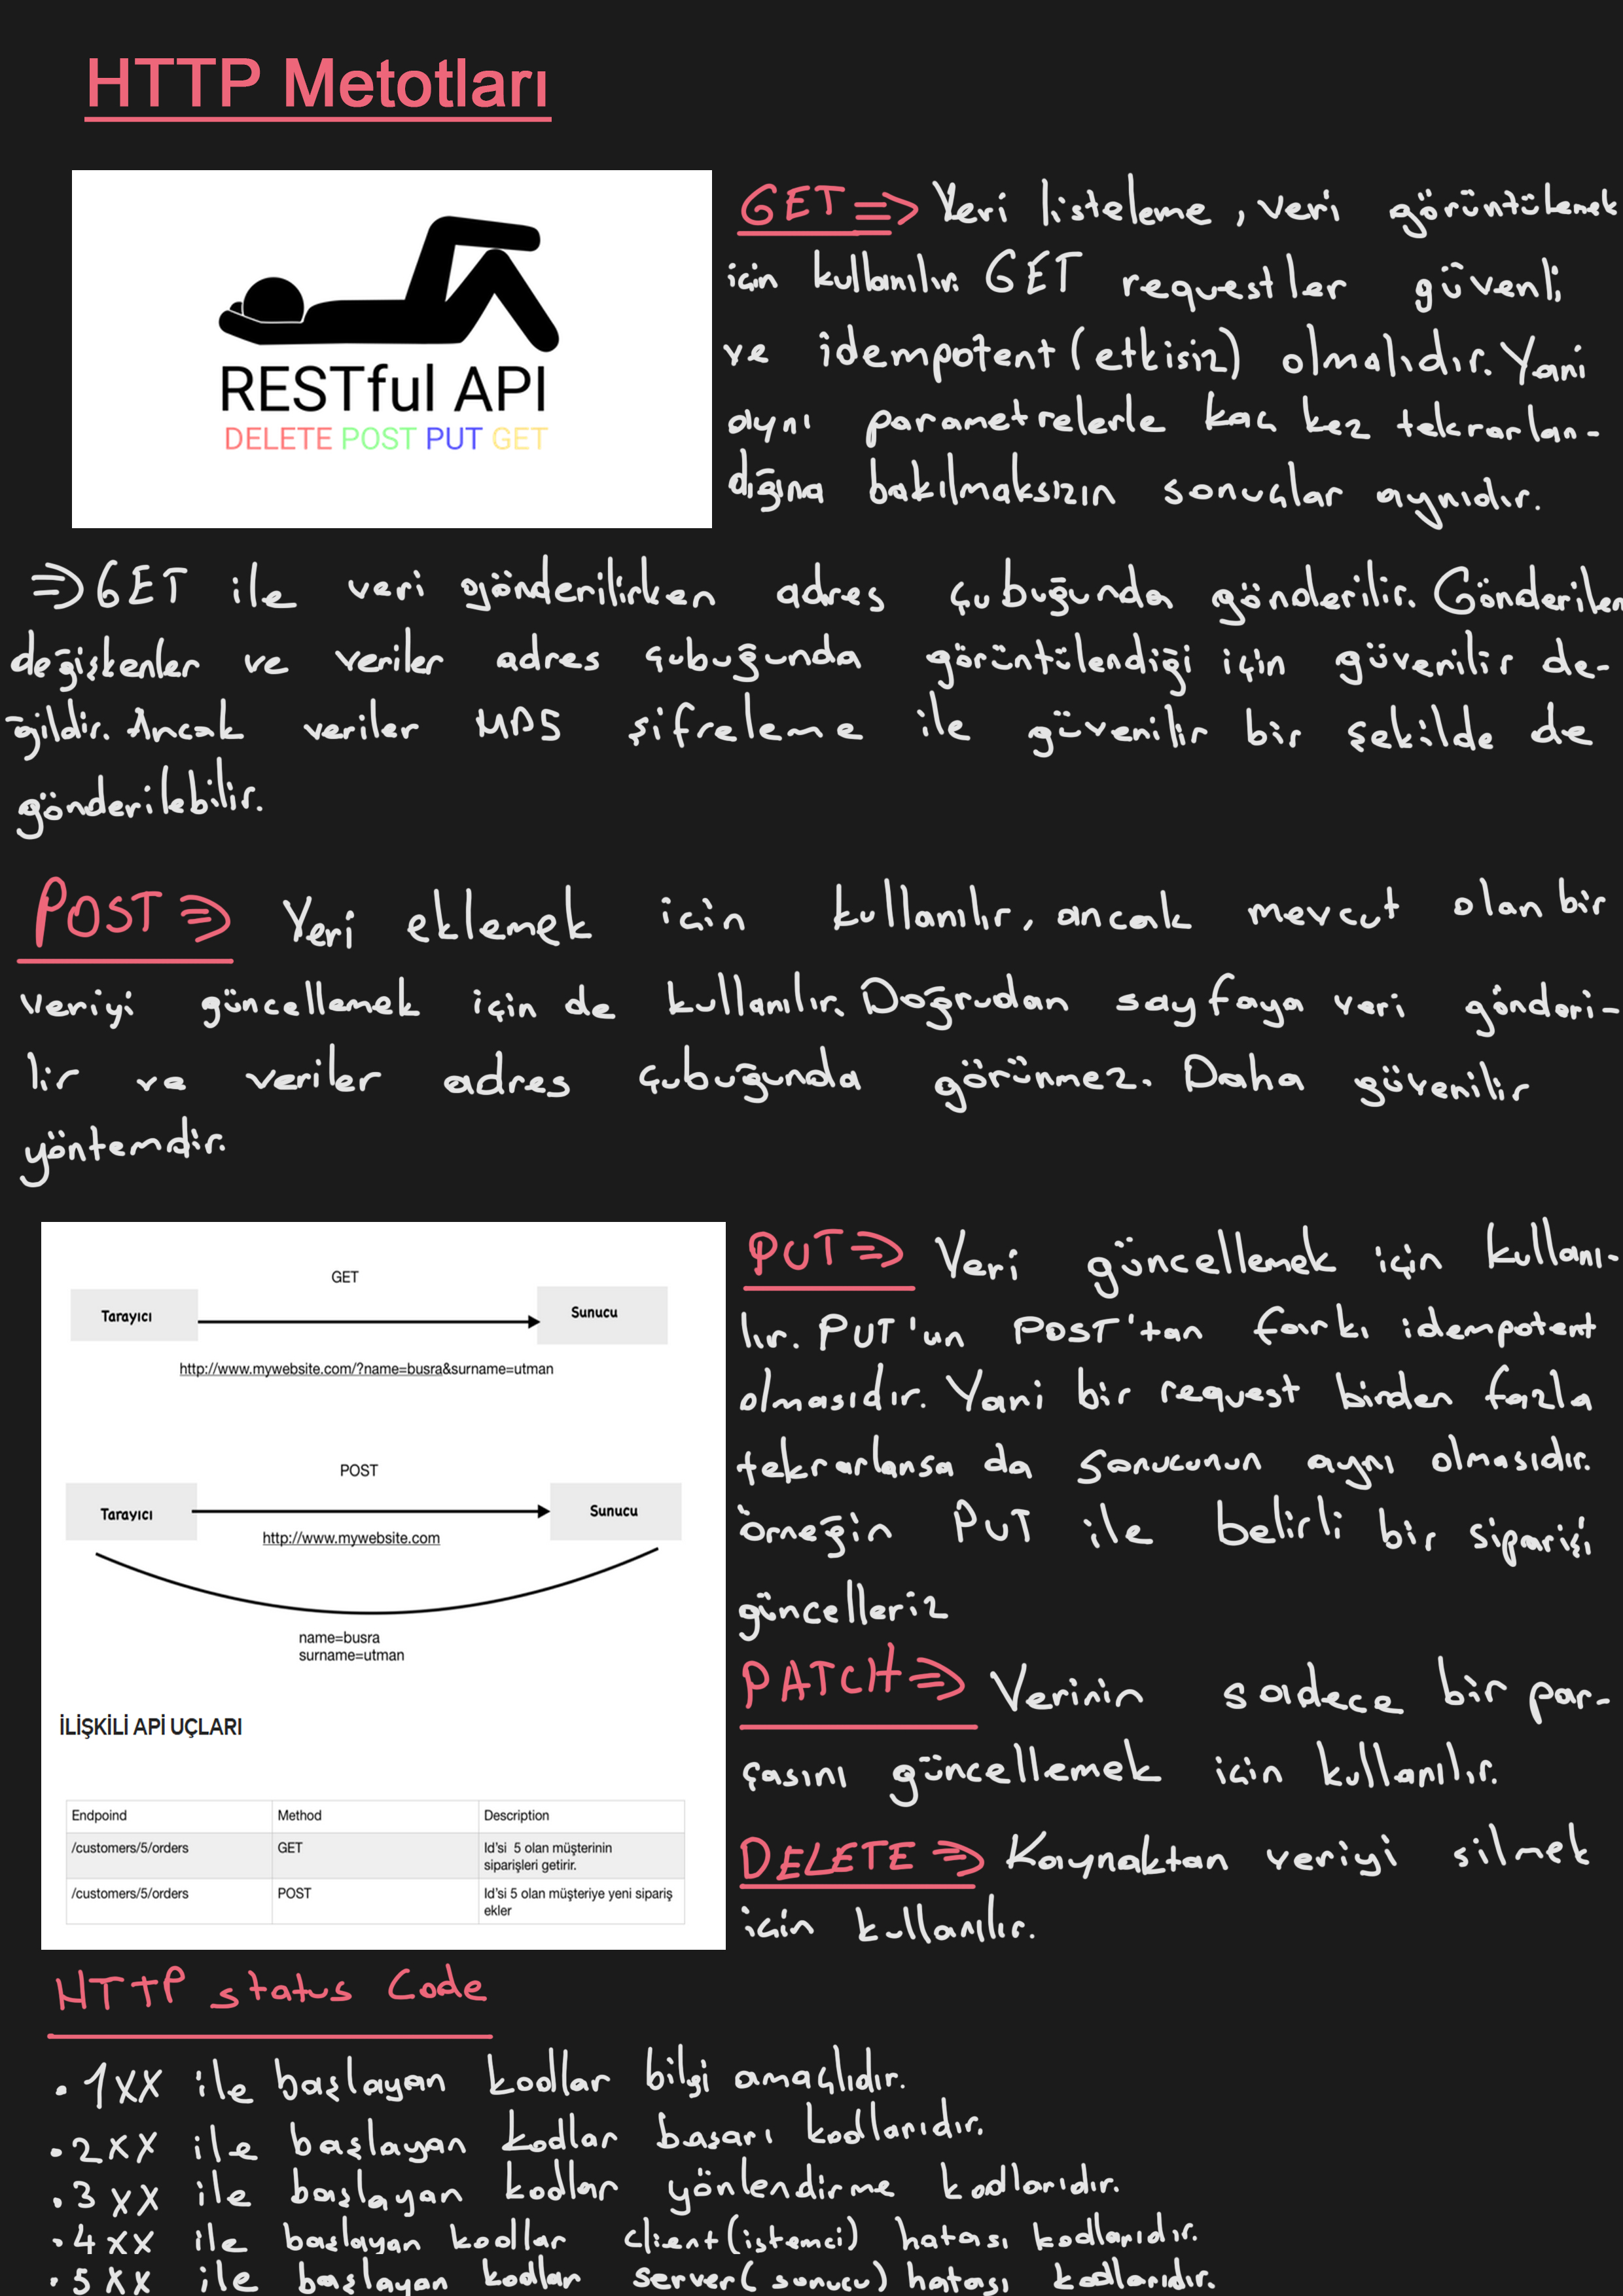 HTTP Metotları
RESTful API
DELETE POST PUT GET
GET => Veri listeleme, veri görüntülemek
için kullanılır. GET requestler güvenli
ve idempotent (etkisiz) olmalıdır. Yani
aynı parametrelerle kaç kez tekrarlan-
dığına bakılmaksızın sonuçlar aynıdır.
=> GET ile veri gönderilirken adres çubuğunda gönderilir. Gönderilen
değişkenler ve veriler adres çubuğunda görüntülendiği için güvenilir de-
ğildir. Ancak veriler MD5 şifreleme ile güvenilir bir şekilde de
gönderilebilir.
POST => Veri eklemek için kullanılır, ancak mevcut olan bir
veriyi güncellemek için de kullanılır. Doğrudan sayfaya veri gönderi-
lir ve veriler adres çubuğunda görünmez. Daha güvenilir
yöntemdir.
GET
Tarayıcı
Sunucu
http://www.mywebsite.com/?name=busra&surname=utman
POST
Tarayıcı
Sunucu
http://www.mywebsite.com
name=busra
surname=utman
İLİŞKİLİ API UÇLARI
Endpoind Method Description
/customers/5/orders GET Id'si 5 olan müşterinin
siparişleri getirir.
/customers/5/orders POST Id'si 5 olan müşteriye yeni sipariş
ekler
PUT => Veri güncellemek için kullanı-
lır. PUT'un POST'tan farkı idempotent
olmasıdır. Yani bir request birden fazla
tekrarlansa da sonucunun aynı olmasıdır.
örneğin PUT ile belirli bir siparişi
güncelleriz
PATCH => Verinin sadece bir par-
çasını güncellemek için kullanılır.
DELETE => Kaynaktan veriyi silmek
için kullanılır.
HTTP status Code
• 1XX ile başlayan kodlar bilgi amaçlıdır.
• 2XX ile başlayan kodlar başarı kodlarıdır.
• 3XX ile başlayan kodlar yönlendirme kodlarıdır.
• 4XX ile başlayan kodlar client (istemci) hatası kodlarıdır.
• 5XX ile başlayan kodlar server (sunucu) hatası kodlarıdır.